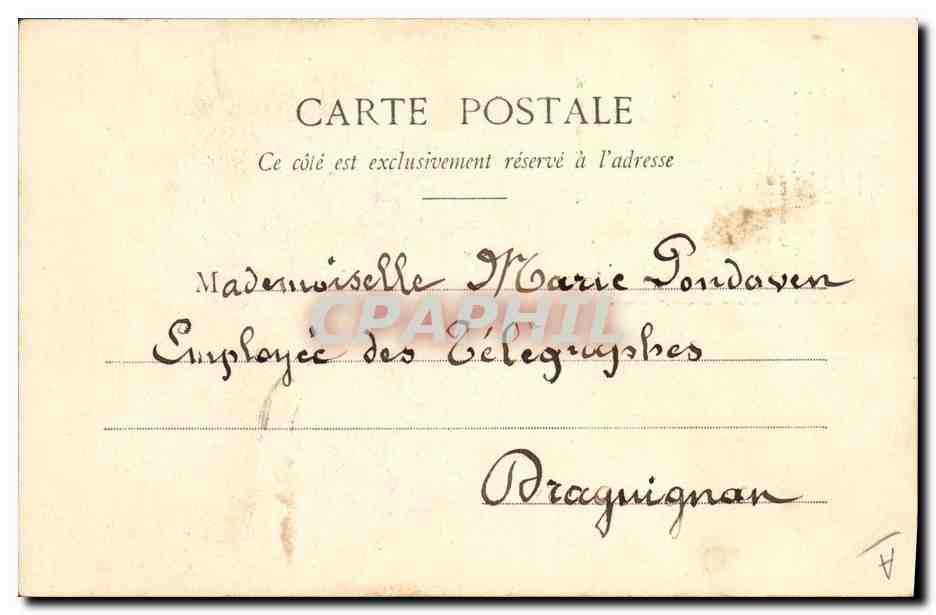 CARTE POSTALE
Ce côté est exclusivement réservé à l'adresse
Mademoiselle Marie Pondaven
CPAPHIL
Employée des Télégraphes
Draguignan
A